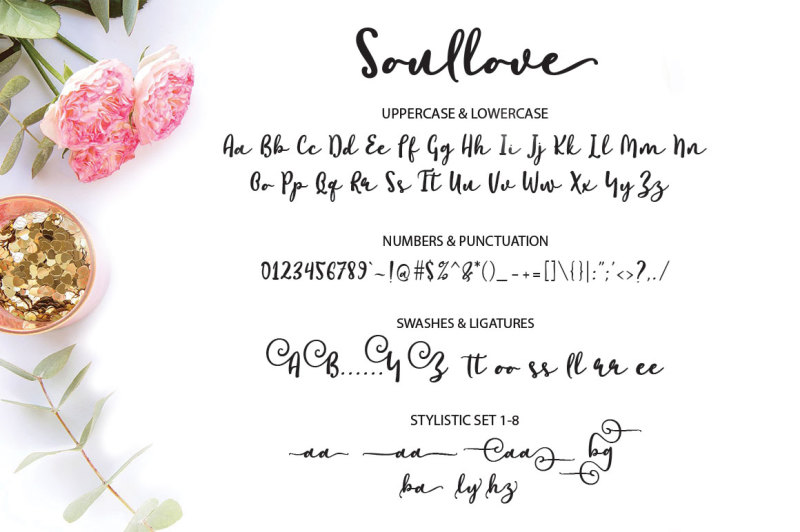 Soullove
UPPERCASE & LOWERCASE
Aa Bb Cc Dd Ee Ff Gg Hh Ii Jj Kk Ll Mm Nn
Oo Pp Qq Rr Ss Tt Uu Vv Ww Xx Yy Zz
NUMBERS & PUNCTUATION
0123456789`~!@#$%^&*()_-+=[]\{}|:";'<>?,./
SWASHES & LIGATURES
AB......YZ tt oo ss ll rr ee
STYLISTIC SET 1-8
aa aa aa bg
ba ly hz